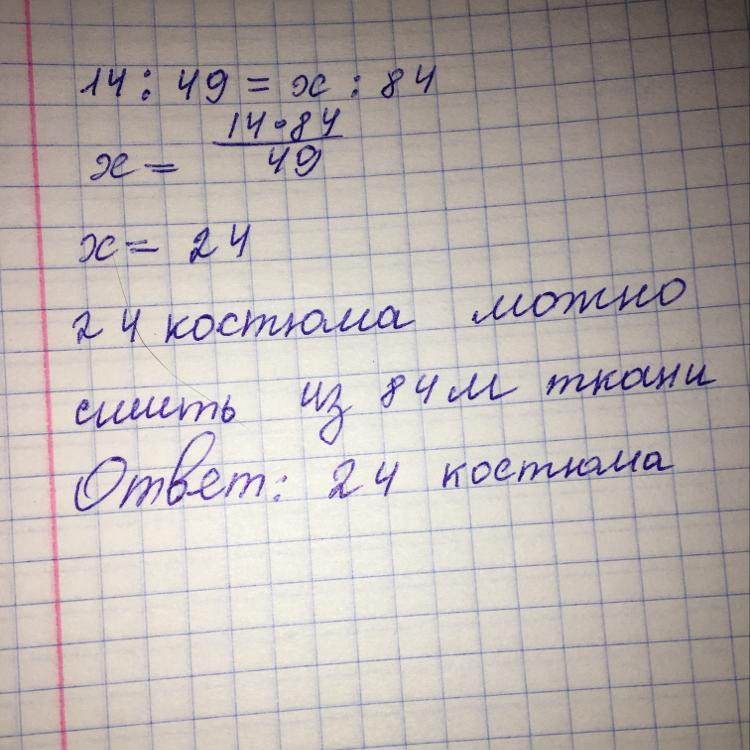 14 : 49 = x : 84
x = 14·84/49
x = 24
24 костюма можно
сшить из 84м ткани
Ответ: 24 костюма